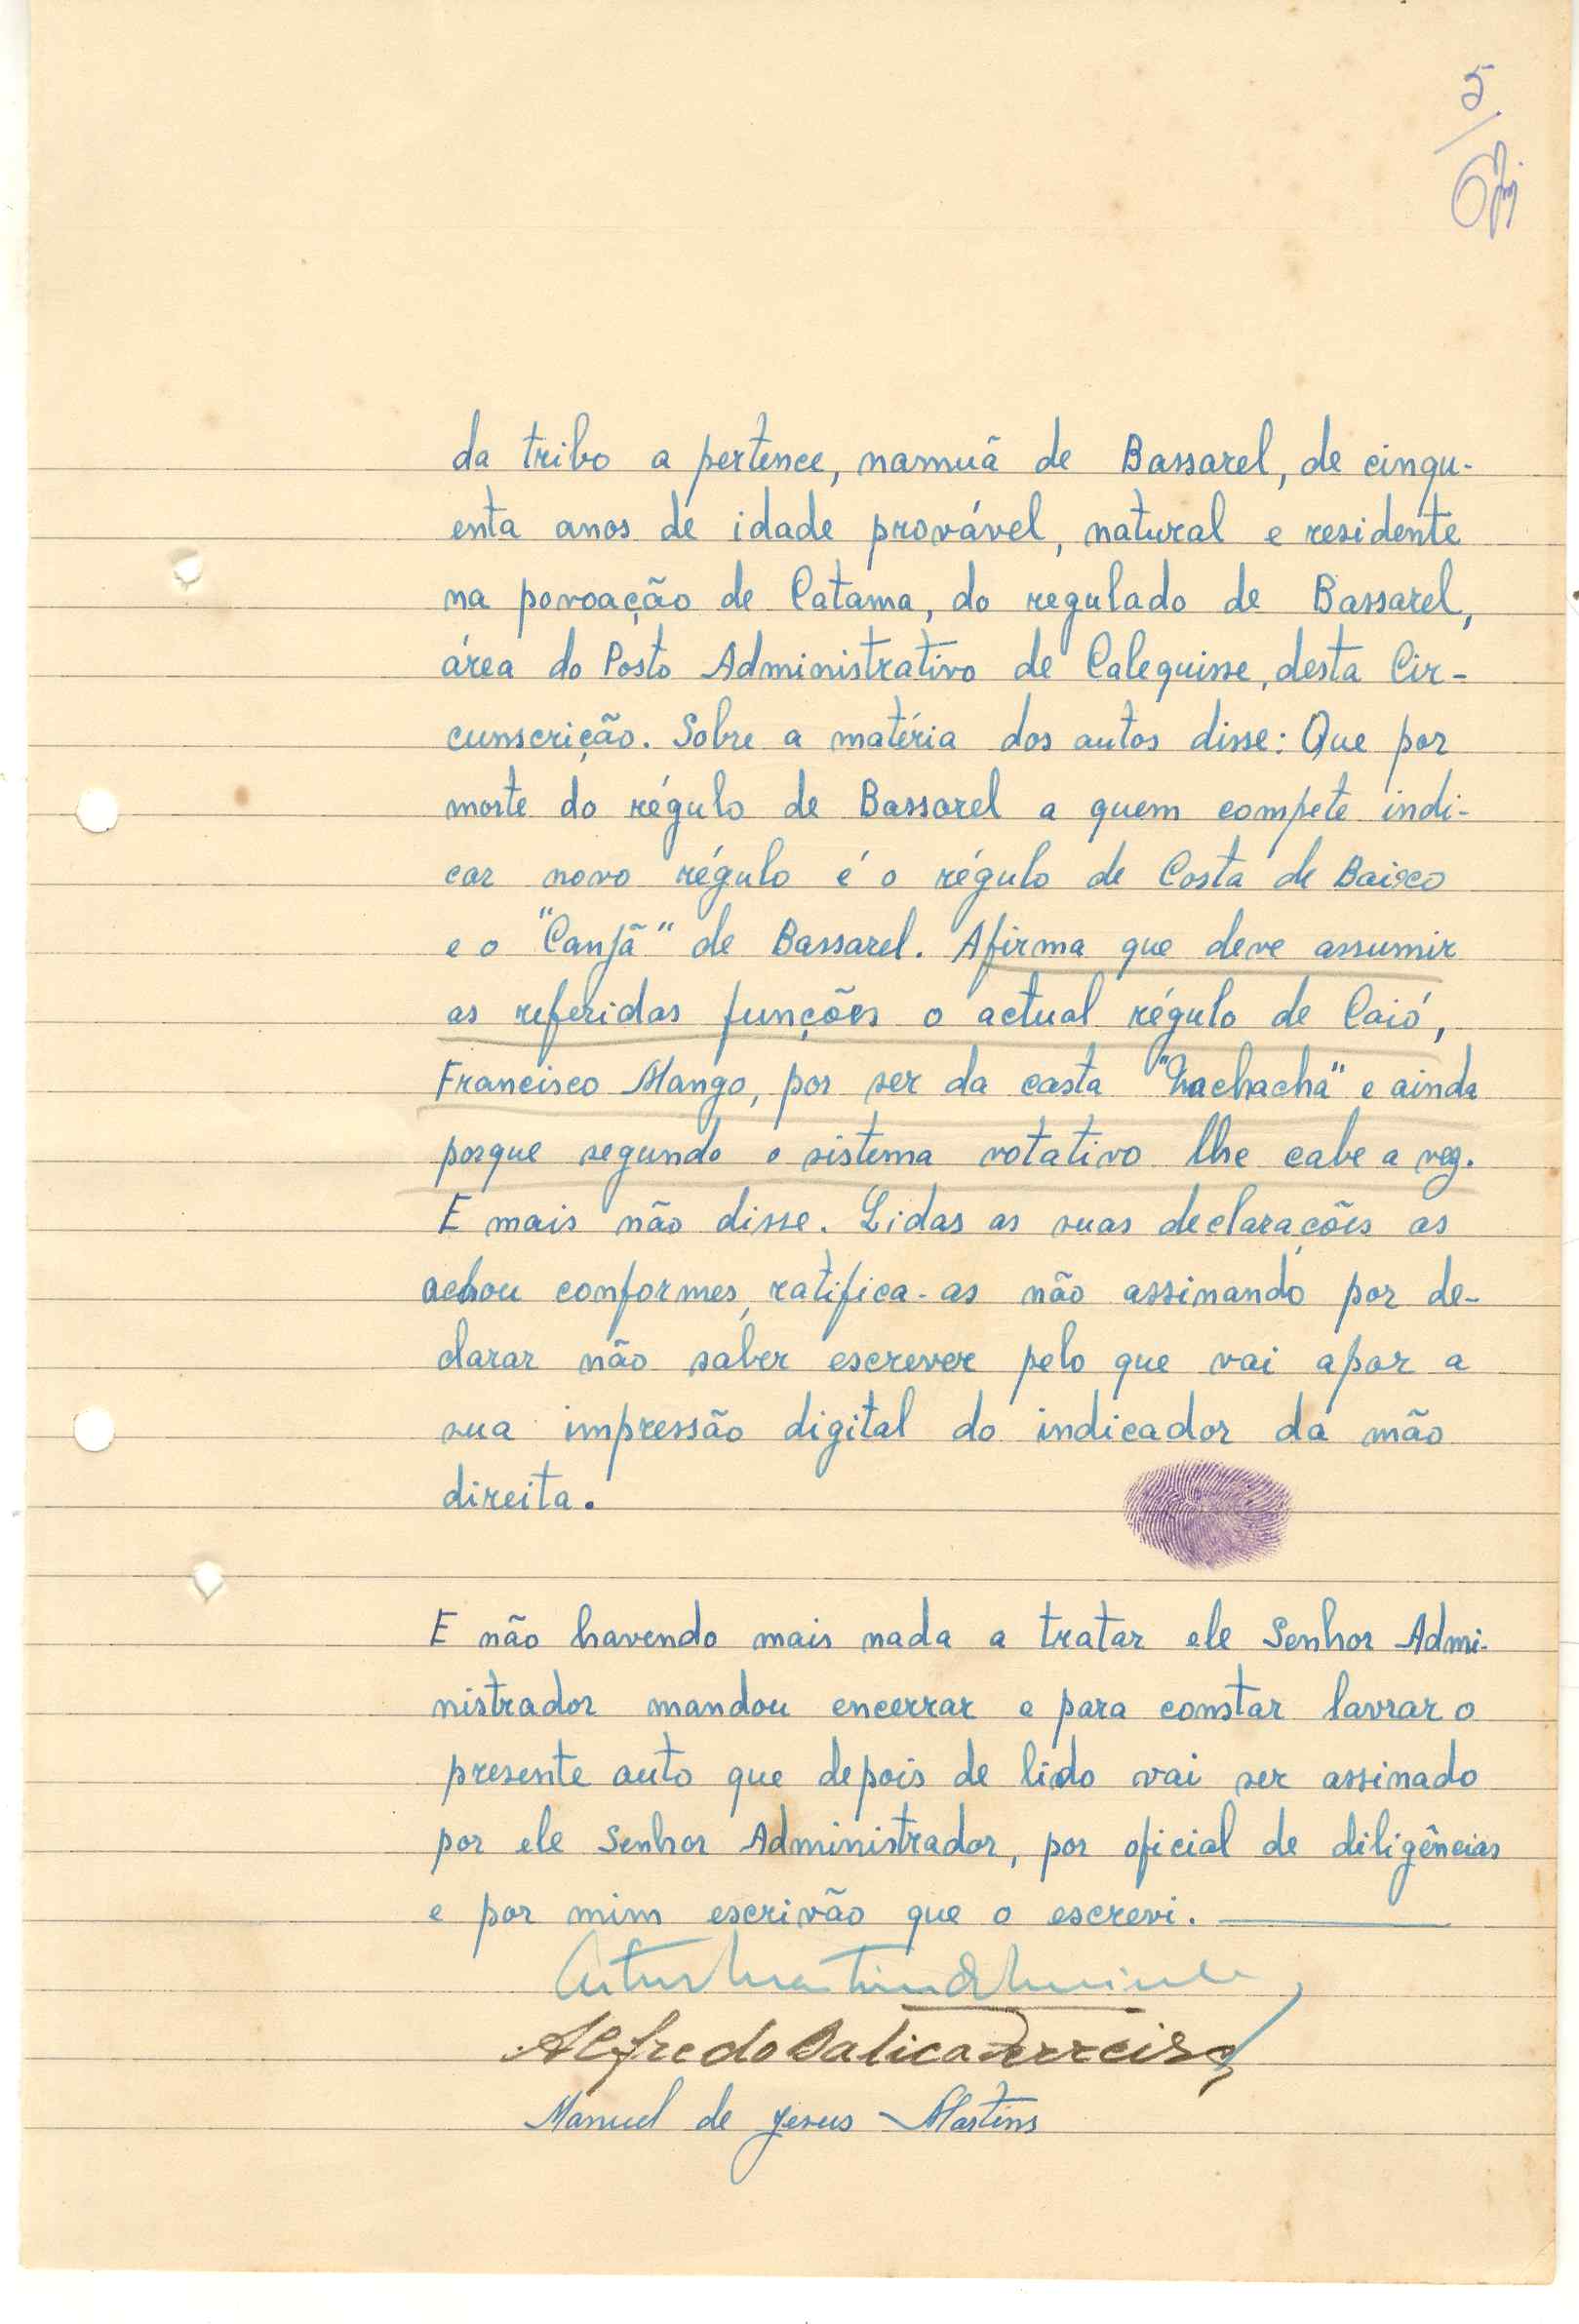 5
da tribo a pertence, namuã de Bassarel, de cinqu-
enta anos de idade provável, natural e residente
na povoação de Catama, do regulado de Bassarel,
área do Posto Administrativo de Calequisse, desta Cir-
cunscrição. Sobre a matéria dos autos disse: Que por
morte do régulo de Bassarel a quem compete indi-
car novo régulo é o régulo de Costa de Baixo
e o "Canjã" de Bassarel. Afirma que deve assumir
as referidas funções o actual régulo de Caió,
Francisco Mango, por ser da casta "bachachã" e ainda
porque segundo o sistema rotativo lhe cabe a vez.
E mais não disse. Lidas as suas declarações as
achou conformes, ratifica-as não assinando por de-
clarar não saber escrever pelo que vai apor a
sua impressão digital do indicador da mão
direita.
E não havendo mais nada a tratar ele Senhor Admi-
nistrador mandou encerrar e para constar lavrar o
presente auto que depois de lido vai ser assinado
por ele Senhor Administrador, por oficial de diligências
e por mim escrivão que o escrevi.
Artur Martins de
Alfredo Batica Ferreira
Manuel de Jesus Martins